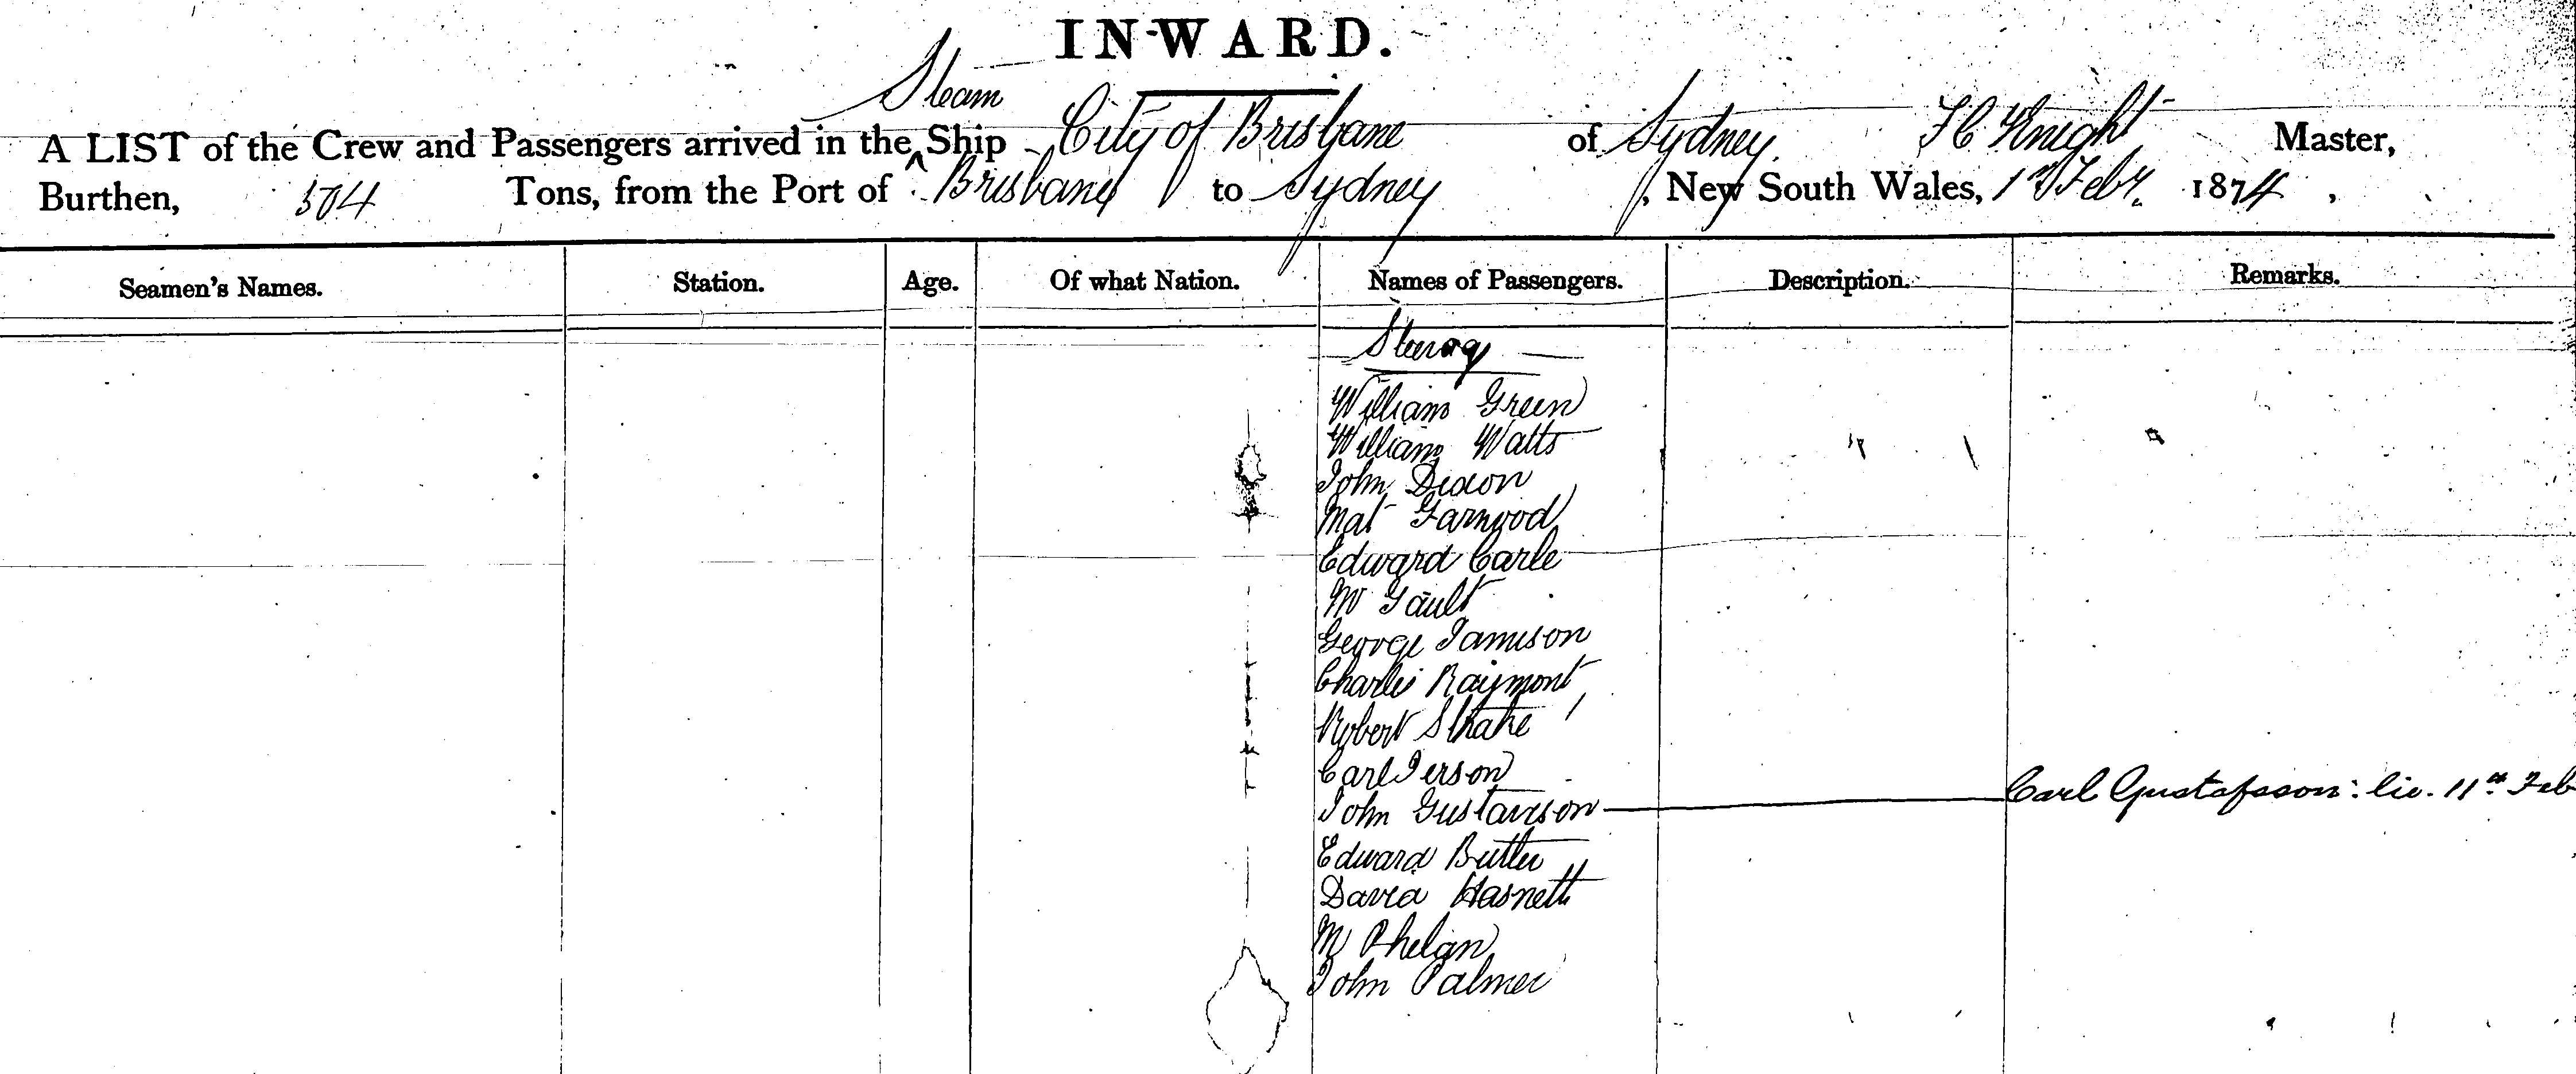 INWARD.
Steam
A LIST of the Crew and Passengers arrived in the ^ Ship City of Brisbane of Sydney, Knight Master,
Burthen, 504 Tons, from the Port of Brisbane to Sydney, New South Wales, 1st Feby. 1874,
Seamen's Names. Station. Age. Of what Nation. Names of Passengers. Description. Remarks.
Steerag
William Green
William Watts
John Dixon
Mat Garwood
Edward Carle
Mr Gault
George Jamison
Charles Raymont
Robert
Carl Ierson
John Gustavison Carl Gustafsson: lic. 11th Feb
Edward Butler
David Hasnett
M Phelan
John Palmer